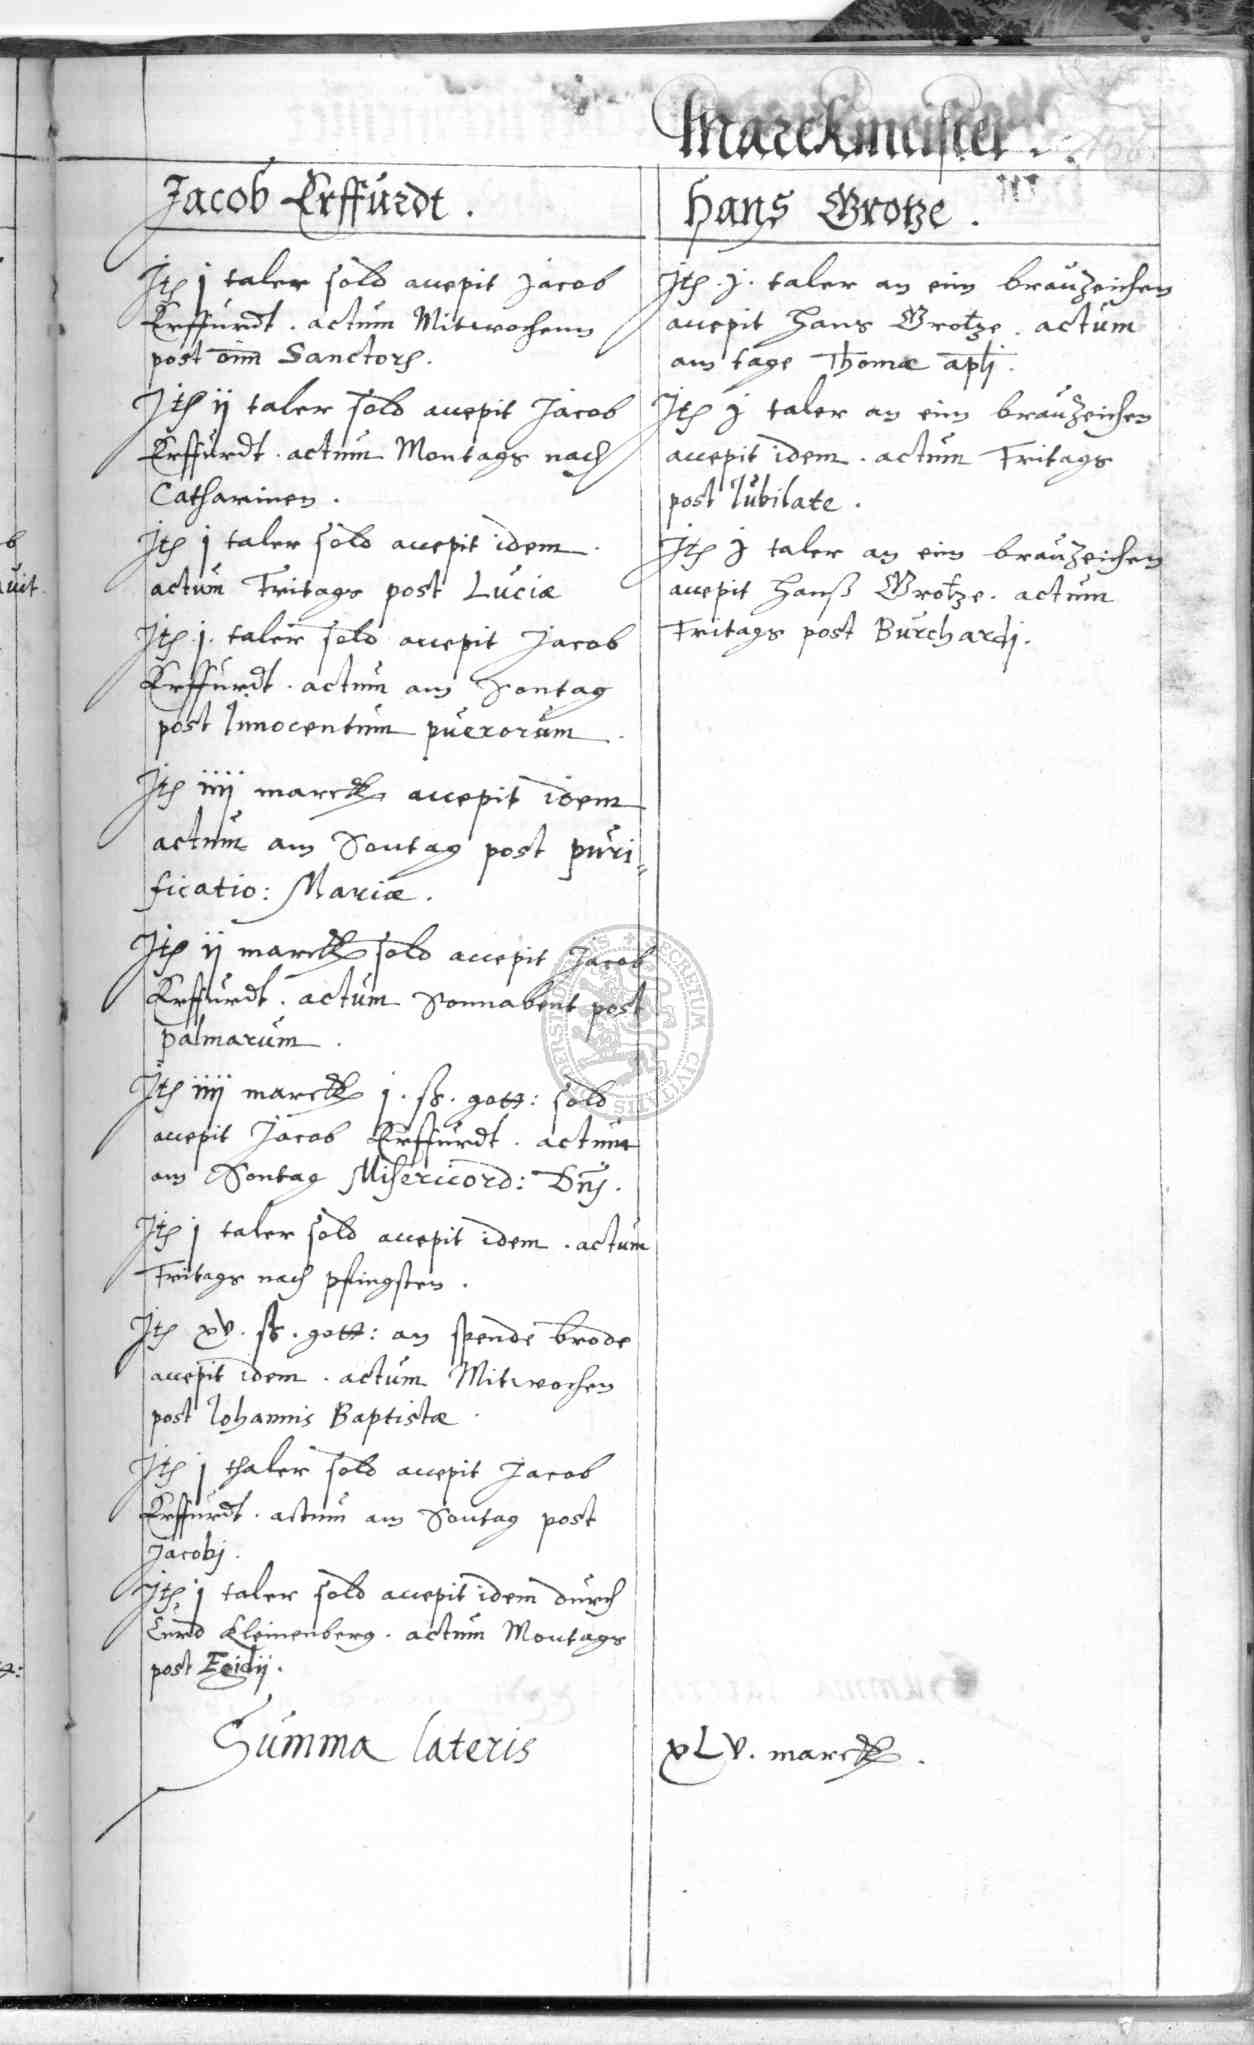 Marckmeister.
Jacob Erffurdt.
Jtem j taler sold accepit Jacob
Erffurdt. actum Mitwochenn
post oim Sanctorum.
Jtem ij taler sold accepit Jacob
Erffurdt. actum Montags nach
Catharinen.
Jtem j taler sold accepit idem.
actum Fritags post Luciæ
Jtem j. taler sold accepit Jacob
Erffurdt. actum am Sontag
post Innocentum puerorum.
Jtem iiij marck accepit idem
actum am Sontag post puri=
ficatio: Mariæ.
Jtem ij marck sold accepit Jacob
Erffurdt. actum Sonnabent post
palmarum.
Jtem iiij marck j. ß. gott: sold
accepit Jacob Erffurdt. actum
am Sontag Misericord: Dnj.
Jtem j taler sold accepit idem. actum
Fritags nach pfingsten.
Jtem xv. ß. gott: an spende brode
accepit idem. actum Mitwochen
post Iohannis Baptistæ.
Jtem j thaler sold accepit Jacob
Erffurdt. actum am Sontag post
Jacobj.
Jtem j taler sold accepit idem durch
Curd Kleinenberg. actum Montags
post Egidij.
Hans Grotze.
Jtem .j. taler an eim brauzeichen
accepit Hans Grotze. actum
am tage Thomæ aplj.
Jtem j taler an eim brauzeichen
accepit idem. actum Fritags
post Iubilate.
Jtem j taler an eim brauzeichen
accepit Hanß Grotze. actum
Fritags post Burchardj.
Summa lateris xLv. marck.
SECRETUM CIVITATIS